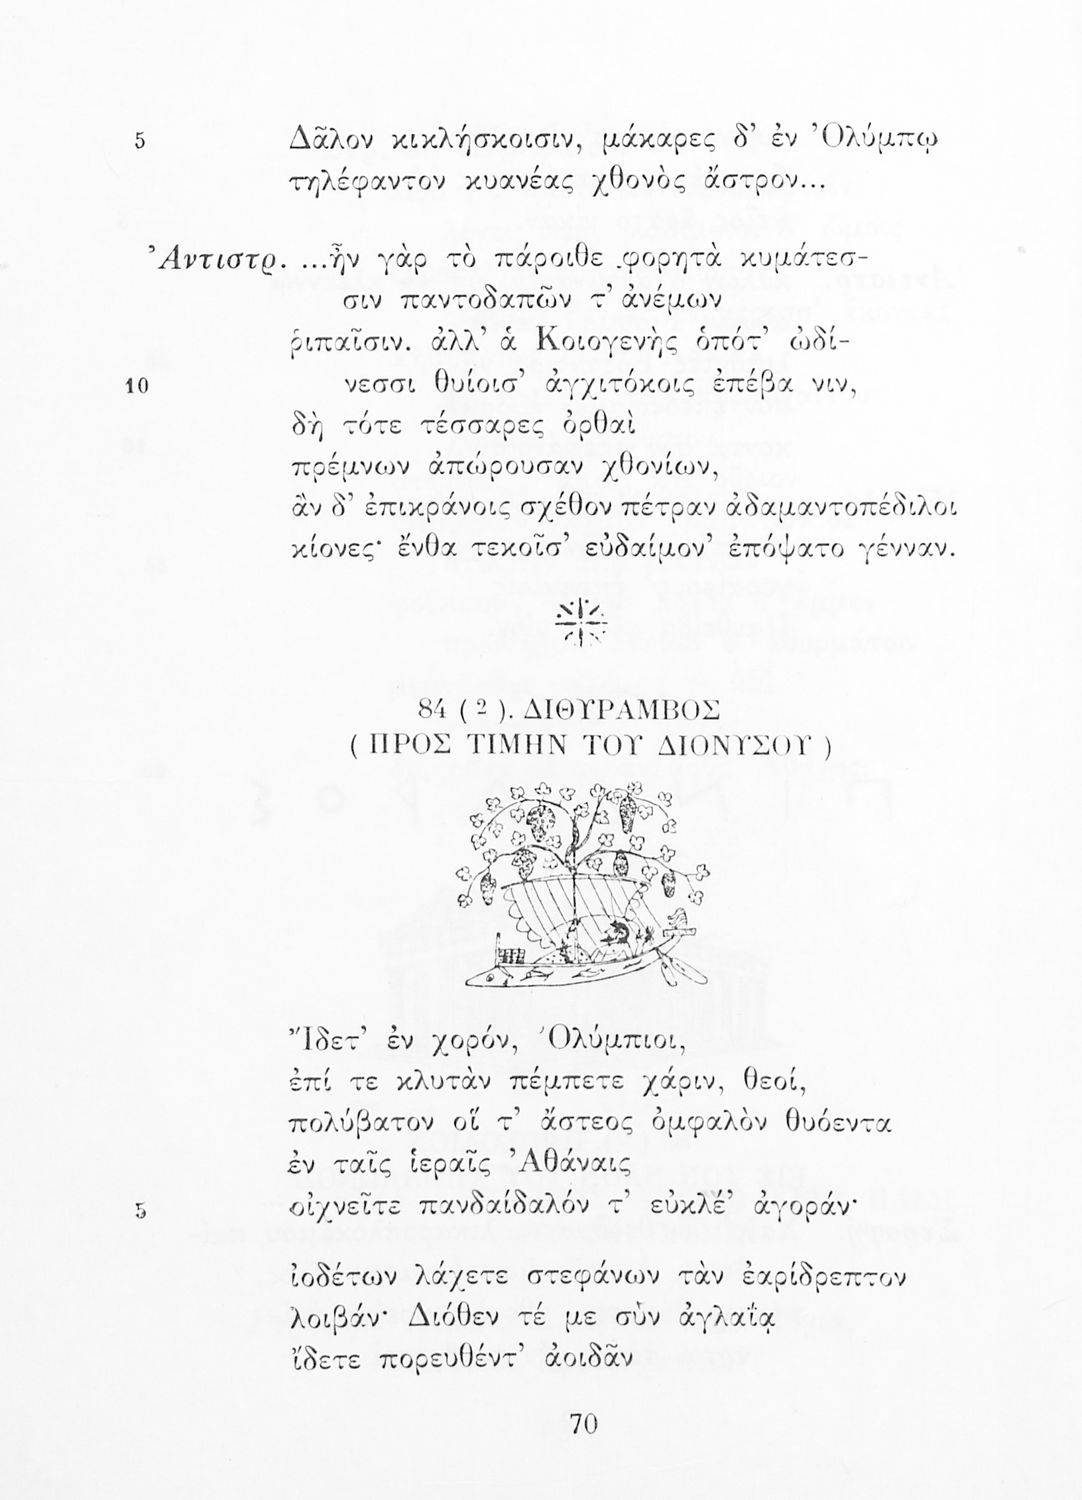 5 Δᾶλον κικλήσκοισιν, μάκαρες δ’ ἐν Ὀλύμπῳ
τηλέφαντον κυανέας χθονὸς ἄστρον...
Ἀντιστρ. ...ἦν γὰρ τὸ πάροιθε φορητὰ κυμάτεσ-
σιν παντοδαπῶν τ’ ἀνέμων
ῥιπαῖσιν. ἀλλ’ ἁ Κοιογενὴς ὁπότ’ ὠδί-
10 νεσσι θυίοισ’ ἀγχιτόκοις ἐπέβα νιν,
δὴ τότε τέσσαρες ὀρθαὶ
πρέμνων ἀπώρουσαν χθονίων,
ἂν δ’ ἐπικράνοις σχέθον πέτραν ἀδαμαντοπέδιλοι
κίονες· ἔνθα τεκοῖσ’ εὐδαίμον’ ἐπόψατο γένναν.
84 ( 2 ). ΔΙΘΥΡΑΜΒΟΣ
( ΠΡΟΣ ΤΙΜΗΝ ΤΟΥ ΔΙΟΝΥΣΟΥ )
Ἴδετ’ ἐν χορόν, Ὀλύμπιοι,
ἐπί τε κλυτὰν πέμπετε χάριν, θεοί,
πολύβατον οἵ τ’ ἄστεος ὀμφαλὸν θυόεντα
ἐν ταῖς ἱεραῖς Ἀθάναις
5 οἰχνεῖτε πανδαίδαλόν τ’ εὐκλέ’ ἀγοράν·
ἰοδέτων λάχετε στεφάνων τὰν ἐαρίδρεπτον
λοιβάν· Διόθεν τέ με σὺν ἀγλαΐᾳ
ἴδετε πορευθέντ’ ἀοιδᾶν
70